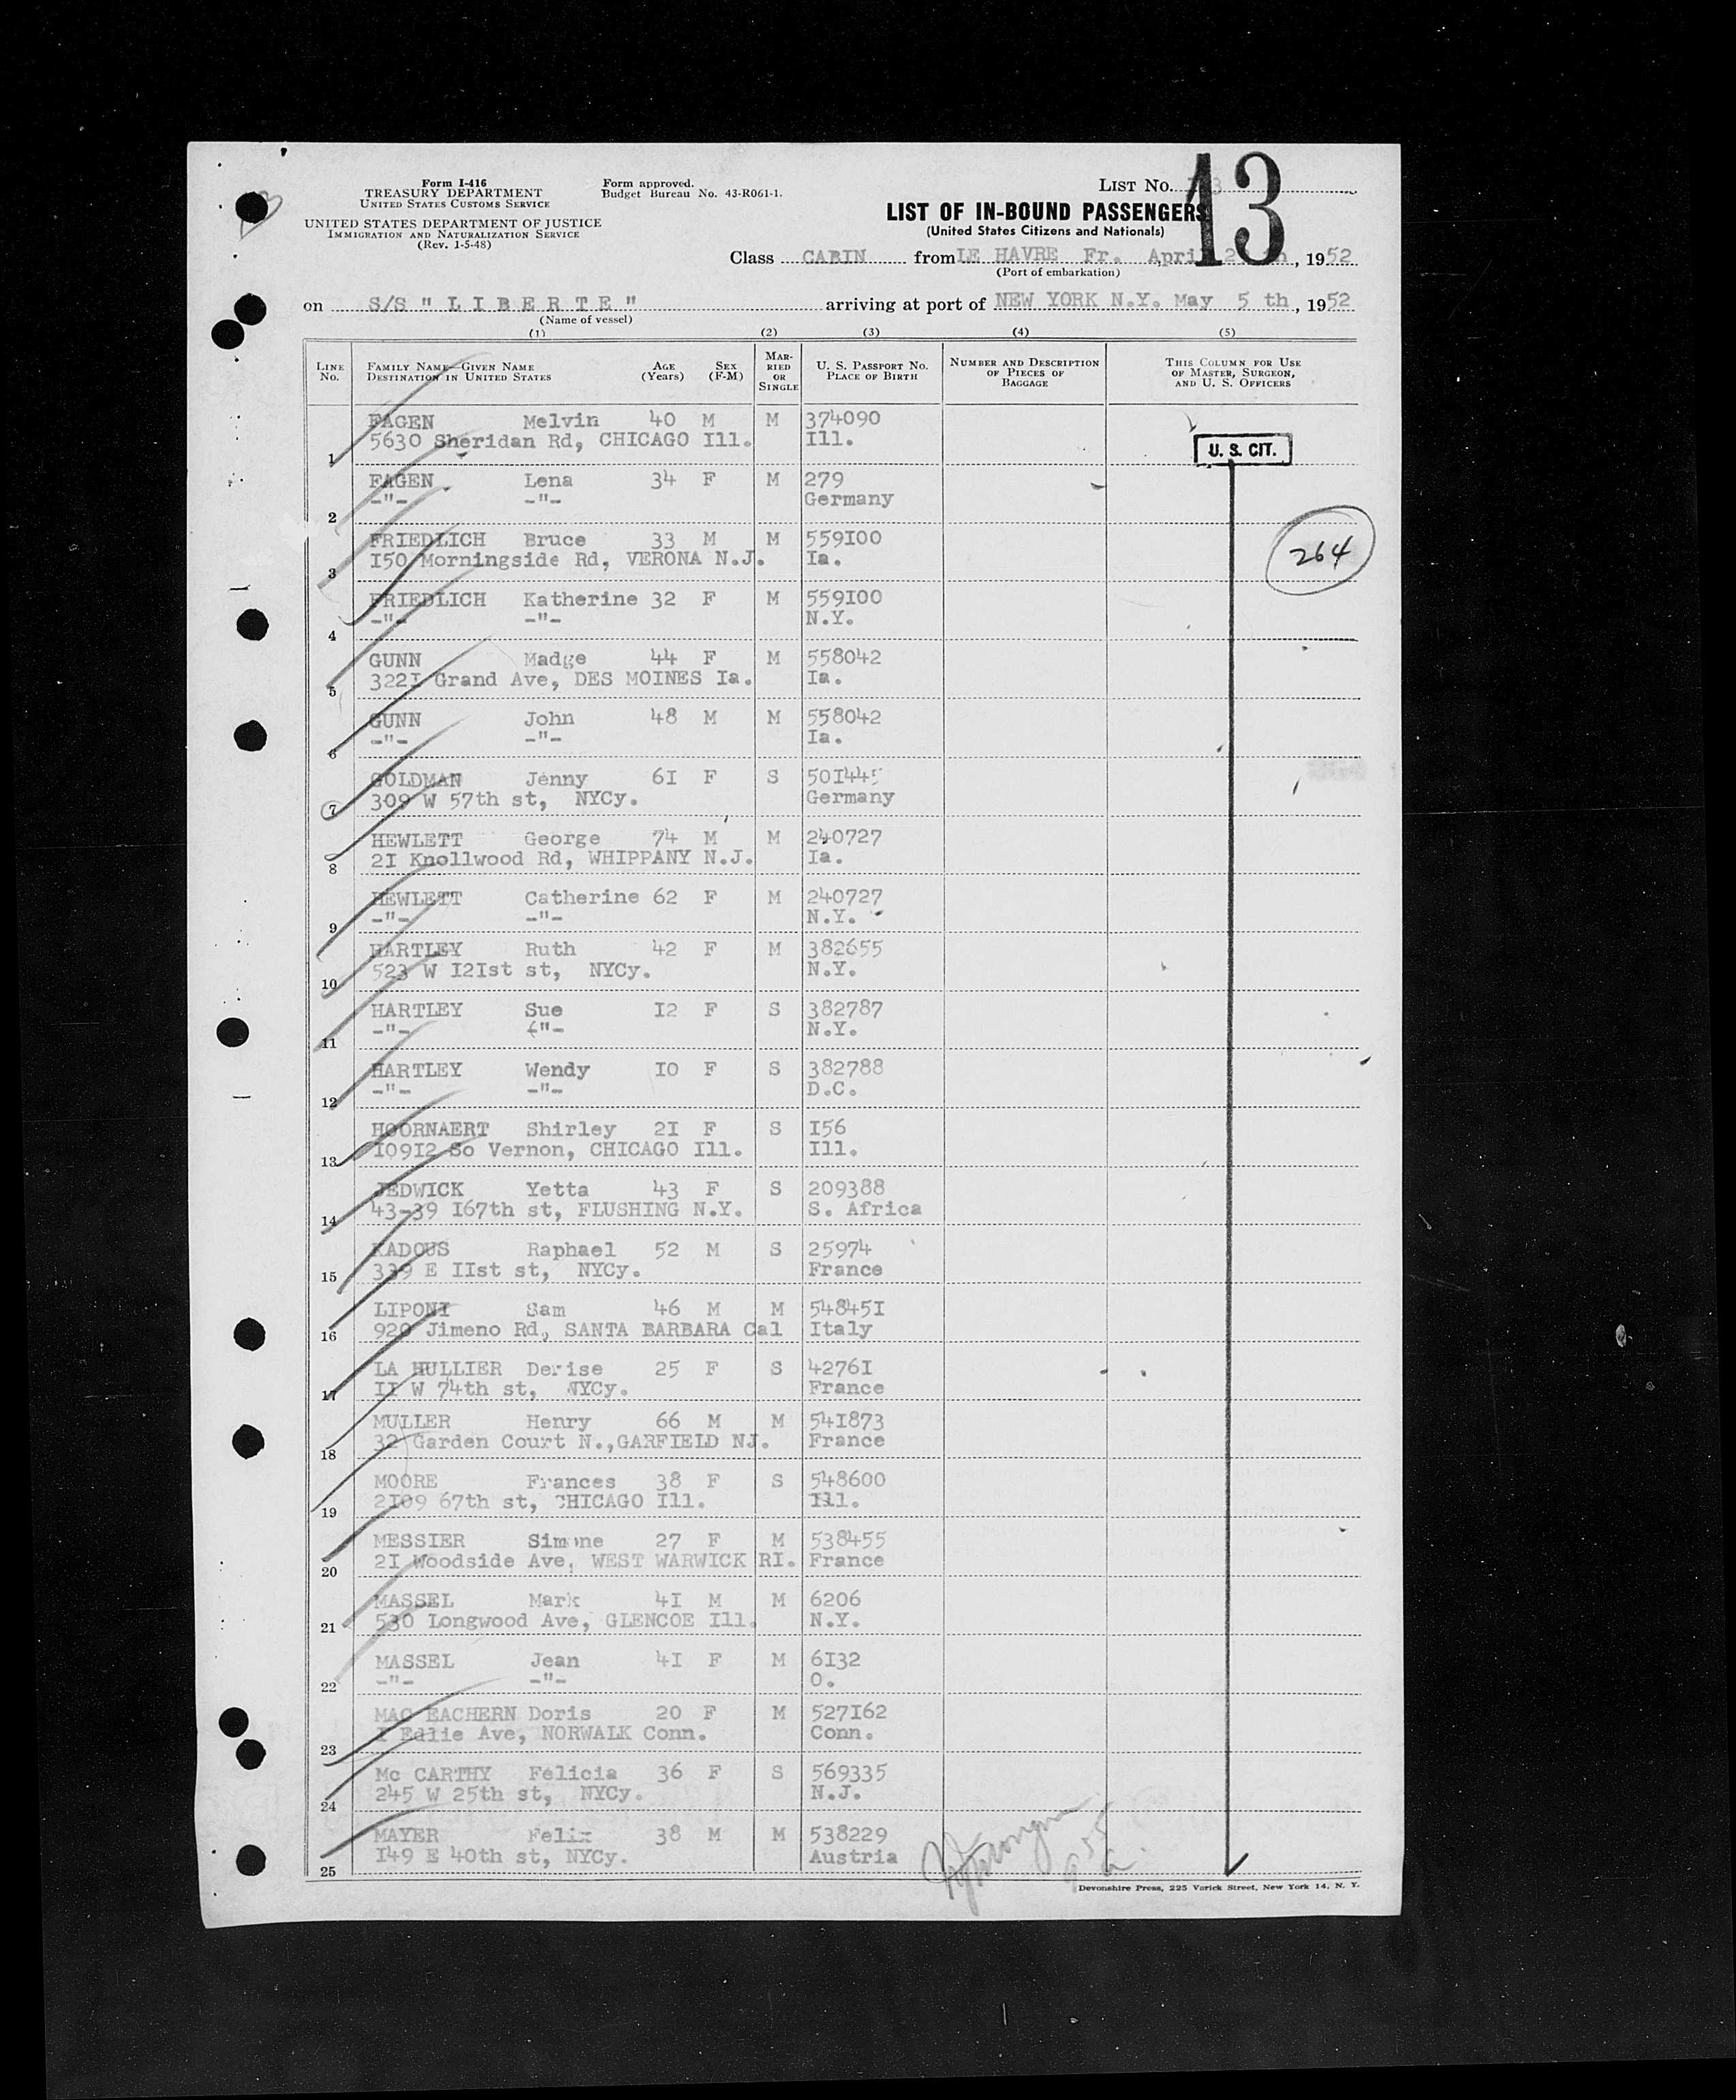 Form I-416
TREASURY DEPARTMENT
UNITED STATES CUSTOMS SERVICE
UNITED STATES DEPARTMENT OF JUSTICE
IMMIGRATION AND NATURALIZATION SERVICE
(Rev. 1-5-48)
Form approved.
Budget Bureau No. 43-R061-1.
LIST No.
13
LIST OF IN-BOUND PASSENGERS
(United States Citizens and Nationals)
Class CABIN from LE HAVRE Fr. April , 1952
(Port of embarkation)
on S/S " L I B E R T E " arriving at port of NEW YORK N.Y. May 5 th , 1952
(Name of vessel)
(1) (2) (3) (4) (5)
LINE No. FAMILY NAME—GIVEN NAME DESTINATION IN UNITED STATES AGE (Years) SEX (F-M) MARRIED OR SINGLE U. S. PASSPORT No. PLACE OF BIRTH NUMBER AND DESCRIPTION OF PIECES OF BAGGAGE THIS COLUMN FOR USE OF MASTER, SURGEON, AND U. S. OFFICERS
FAGEN Melvin 40 M M 374090
1 5630 Sheridan Rd, CHICAGO Ill. Ill.
U. S. CIT.
FAGEN Lena 34 F M 279
2 -"- -"- Germany
FRIEDLICH Bruce 33 M M 559I00
3 I50 Morningside Rd, VERONA N.J. Ia.
264
FRIEDLICH Katherine 32 F M 559I00
4 -"- -"- N.Y.
GUNN Madge 44 F M 558042
5 322I Grand Ave, DES MOINES Ia. Ia.
GUNN John 48 M M 558042
6 -"- -"- Ia.
GOLDMAN Jenny 6I F S 50I445
7 309 W 57th st, NYCy. Germany
HEWLETT George 74 M M 240727
8 2I Knollwood Rd, WHIPPANY N.J. Ia.
HEWLETT Catherine 62 F M 240727
9 -"- -"- N.Y.
HARTLEY Ruth 42 F M 382655
10 523 W I2Ist st, NYCy. N.Y.
HARTLEY Sue I2 F S 382787
11 -"- -"- N.Y.
HARTLEY Wendy I0 F S 382788
12 -"- -"- D.C.
HOORNAERT Shirley 2I F S I56
13 I09I2 So Vernon, CHICAGO Ill. Ill.
JEDWICK Yetta 43 F S 209388
14 43-39 I67th st, FLUSHING N.Y. S. Africa
KADOUS Raphael 52 M S 25974
15 339 E IIst st, NYCy. France
LIPONI Sam 46 M M 54845I
16 920 Jimeno Rd, SANTA BARBARA Cal Italy
LA HULLIER Denise 25 F S 4276I
17 II W 74th st, NYCy. France
MULLER Henry 66 M M 54I873
18 32 Garden Court N.,GARFIELD NJ. France
MOORE Frances 38 F S 548600
19 2I09 67th st, CHICAGO Ill. Ill.
MESSIER Simone 27 F M 538455
20 2I Woodside Ave, WEST WARWICK RI. France
MASSEL Mark 4I M M 6206
21 530 Longwood Ave, GLENCOE Ill. N.Y.
MASSEL Jean 4I F M 6I32
22 -"- -"- O.
MAC EACHERN Doris 20 F M 527I62
23 I Edlie Ave, NORWALK Conn. Conn.
Mc CARTHY Felicia 36 F S 569335
24 245 W 25th st, NYCy. N.J.
MAYER Felix 38 M M 538229
25 I49 E 40th st, NYCy. Austria
Devonshire Press, 225 Varick Street, New York 14, N. Y.